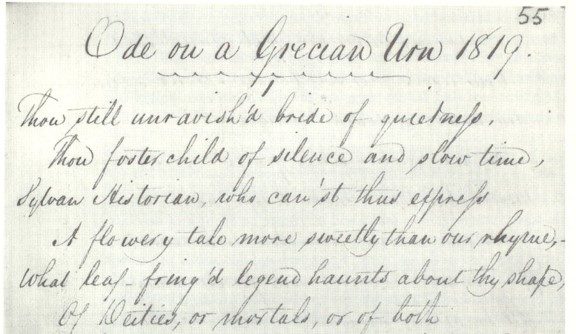 55
Ode on a Grecian Urn 1819.
Thou still unravish'd bride of quietness,
Thou foster child of silence and slow time,
Sylvan Historian, who can'st thus express
A flowery tale more sweetly than our rhyme,-
What leaf-fring'd legend haunts about thy shape,
Of Deities, or mortals, or of both